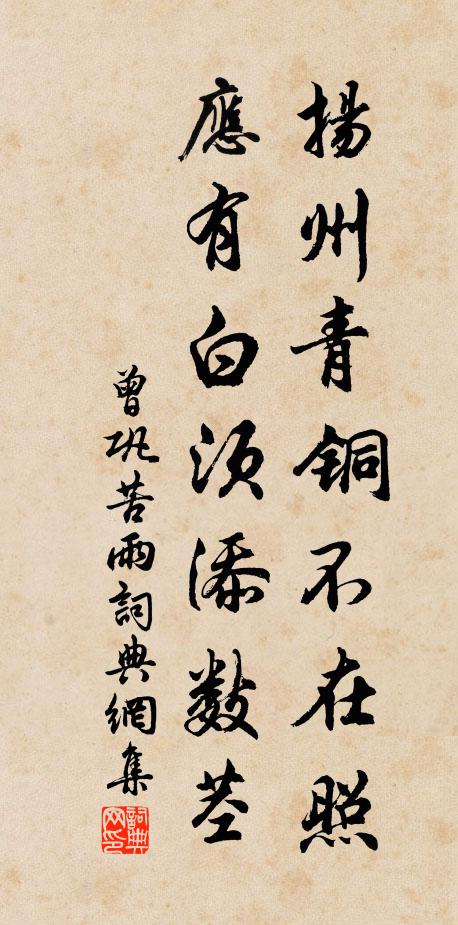 揚州青銅不在照
應有白須添數莖
曾巩苦雨詞典網集
詞典網印